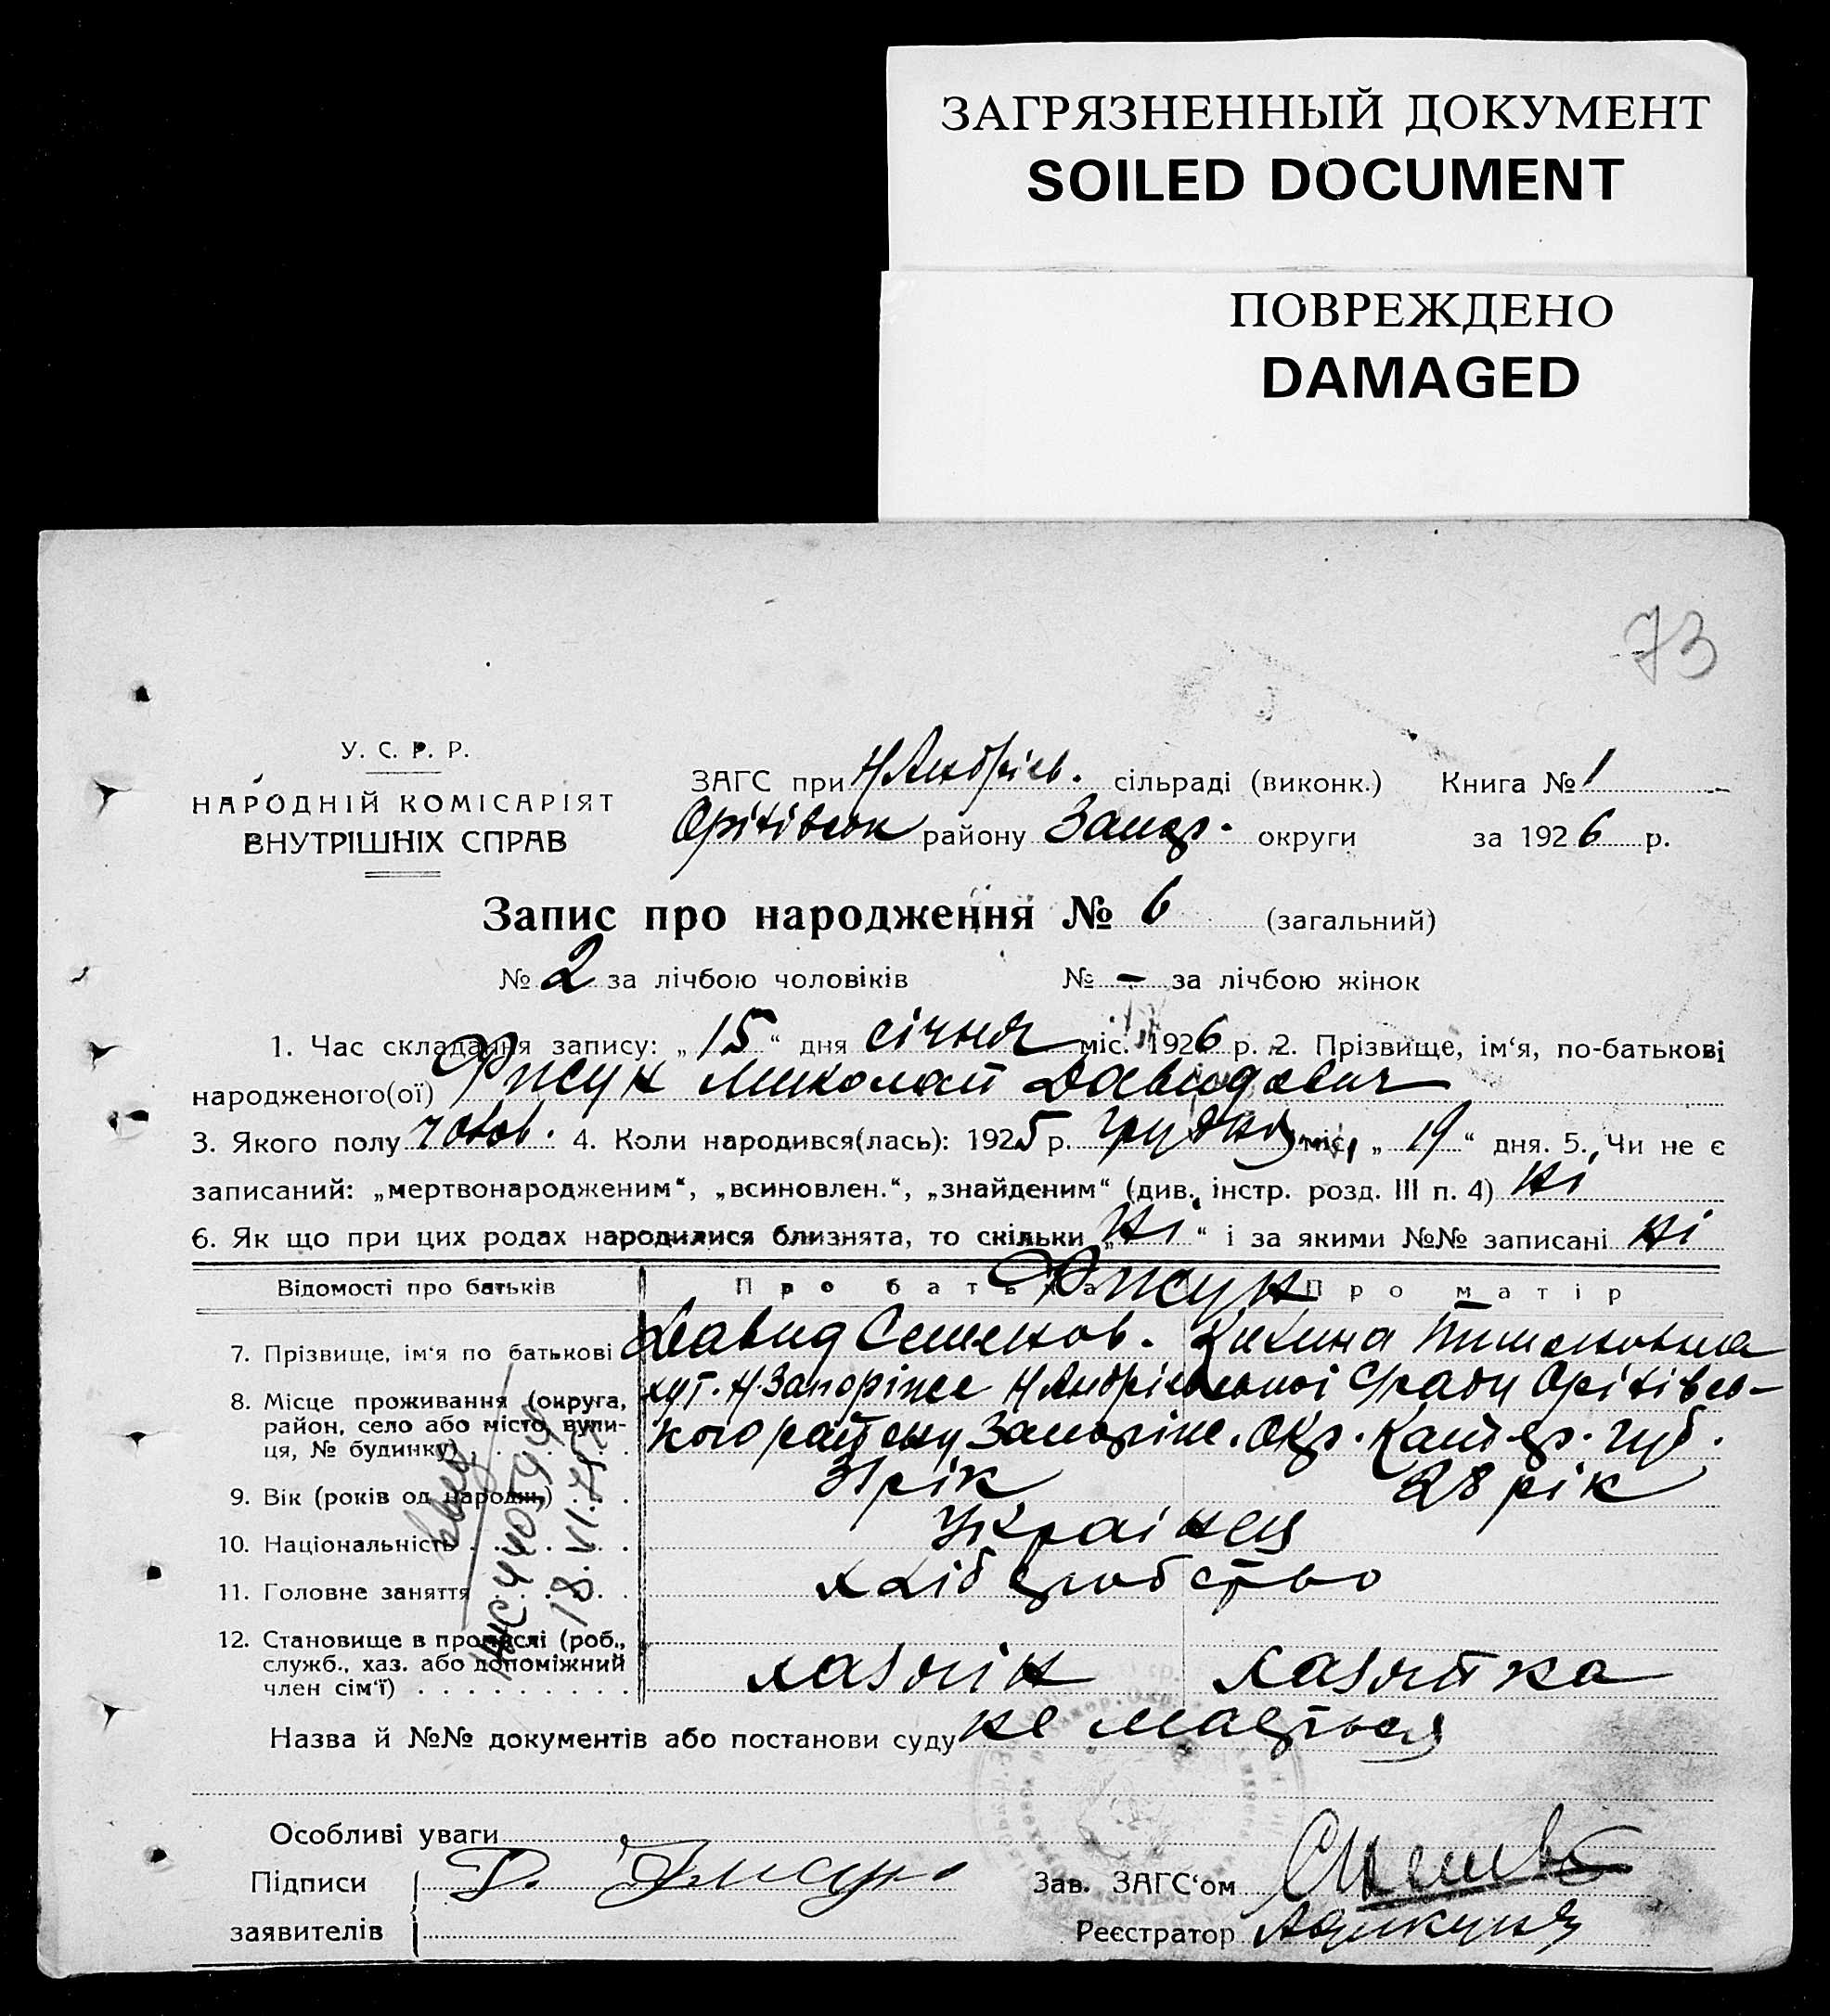 ЗАГРЯЗНЕННЫЙ ДОКУМЕНТ
SOILED DOCUMENT
ПОВРЕЖДЕНО
DAMAGED
73
У. С. Р. Р.
НАРОДНІЙ КОМІСАРІЯТ
ВНУТРІШНІХ СПРАВ
ЗАГС при Н Андрієв. сільраді (виконк.) Книга № 1
Оріхівськ району Запор. округи за 1926 р.
Запис про народження № 6 (загальний)
№ 2 за лічбою чоловіків № – за лічбою жінок
1. Час складання запису: „15“ дня січня міс. 1926 р. 2. Прізвище, ім‘я, по-батькові
народженого(ої) Фисун Миколай Давидович
3. Якого полу чолов. 4. Коли народився(лась): 1925 р. грудня міс. „19“ дня. 5. Чи не є
записаний: „мертвонародженим“, „всиновлен.“, „знайденим“ (див. інстр. розд. III п. 4) Ні
6. Як що при цих родах народилися близнята, то скільки „Ні“ і за якими №№ записані Ні
Відомості про батьків Про батька Про матір
Фисун
7. Прізвище, ім‘я по батькові Давид Семенов. Тимоховна
8. Місце проживання (округа, район, село або місто, вули-ця, № будинку) хут. Н.Запоріже Н Андрієвської С/ради Оріхівсь-
кого району Запоріж. Окр. Катер. губ.
9. Вік (років од народж.) 31 рік 28 рік
10. Національність Українец
11. Головне заняття хліборобство
12. Становище в промислі (роб., служб., хаз. або допоміжний член сім‘ї) хазяїн хазяйка
Назва й №№ документів або постанови суду не мається
Особливі уваги
Підписи
заявителів
Д. Фисун
Зав. ЗАГС‘ом
Реєстратор
18.VI.